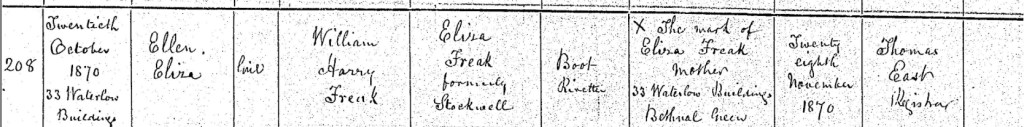 208
Twentieth
October
1870
33 Waterlow
Buildings
Ellen
Eliza
Girl
William
Harry
Freak
Eliza
Freak
formerly
Stockwell
Boot
Rivetter
X The mark of
Eliza Freak
Mother
33 Waterlow Buildings
Bethnal Green
Twenty
eighth
November
1870
Thomas
East
Registrar